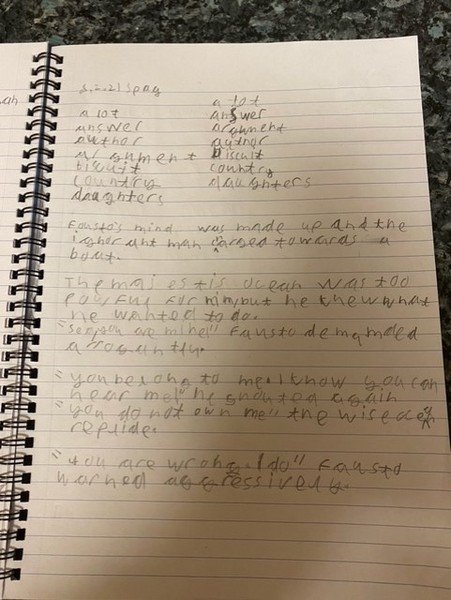 spag
a lot
a lot
answer
answer
argument
author
author
argument
biscuit
biscuit
country
country
daughters
daughters
Fausto's mind was made up and the
ignorant man barged towards a
boat.
The majestis ocean was too
powful for him, but he thew what
he wanted to do.
"sea you are mine!" Fausto demanded
arrogantly.
"you belong to me. I know you can
hear me!" he shouted again
"you do not own me" the wise
replide.
"You are wrong. I do" Fausto
warned aggressively.